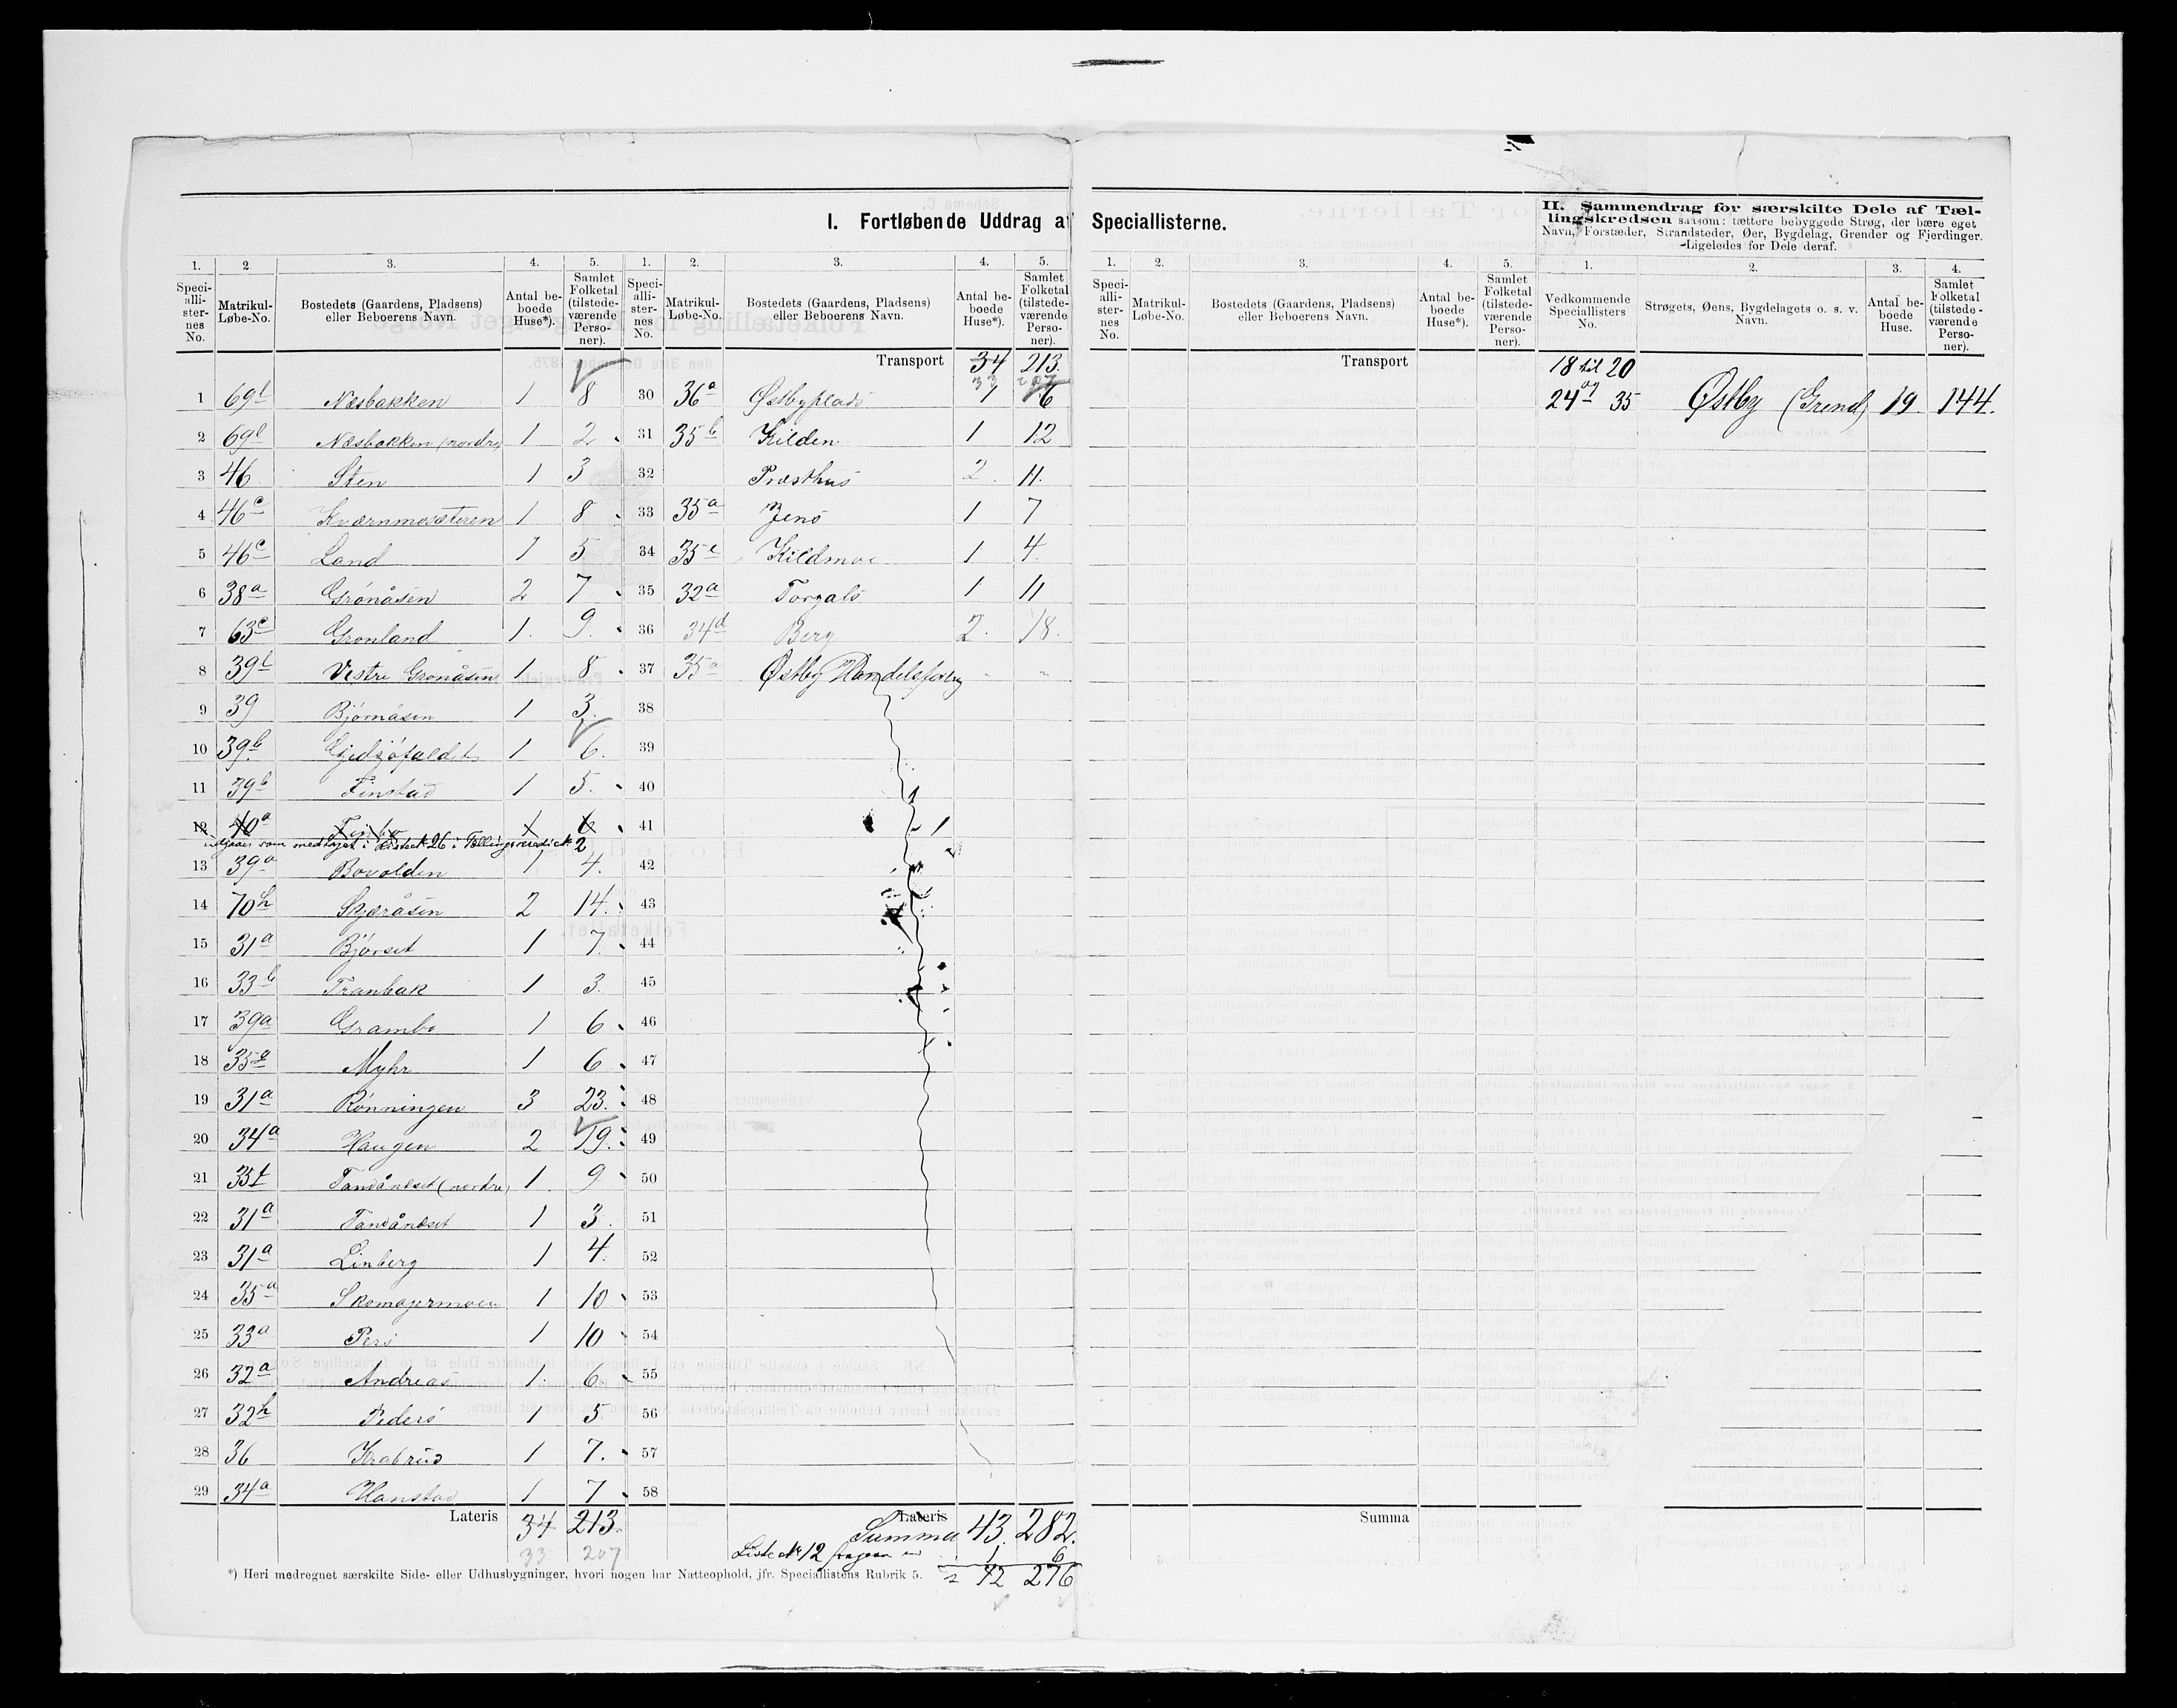 I. Fortløbende Uddrag af Speciallisterne.
II. Sammendrag for særskilte Dele af Tæl-
lingskredsen saasom: tættere bebyggede Strøg, der bære eget
Navn, Forstæder, Strandsteder, Øer, Bygdelag, Grender og Fjerdinger.
Ligeledes for Dele deraf.
1. 2. 3. 4. 5. 1. 2. 3. 4. 5. 1. 2. 3. 4. 5. 1. 2. 3. 4.
Speci-alli-ster-nes No. Matrikul-Løbe-No. Bostedets (Gaardens, Pladsens) eller Beboerens Navn. Antal be-boede Huse*). Samlet Folketal (tilstede-værende Perso-ner).
Speci-alli-ster-nes No. Matrikul-Løbe-No. Bostedets (Gaardens, Pladsens) eller Beboerens Navn. Antal be-boede Huse*). Samlet Folketal (tilstede-værende Perso-ner).
Speci-alli-ster-nes No. Matrikul-Løbe-No. Bostedets (Gaardens, Pladsens) eller Beboerens Navn. Antal be-boede Huse*). Samlet Folketal (tilstede-værende Perso-ner).
Vedkommende Speciallisters No. Strøgets, Øens, Bygdelagets o. s. v. Navn. Antal be-boede Huse. Samlet Folketal (tilstede-værende Perso-ner).
1 69 Næsbakken 1 8
2 69 Næsbakken (nordre) 1 2
3 46 Sten 1 3
4 46c Kværnmosæteren 1 8
5 46c Land 1 5
6 38a Grønåsen 2 7
7 63c Grønland 1. 9.
8 39 Vestre Grønåsen 1 8
9 39 Bjørnåsen 1 3.
10 39b 1 6.
11 39b Finstad 1 5.
12 40a 1 6
udgaar som medtaget i 26 i 2
13 39a Bovolden 1 4.
14 70h Skjæråsen 2 14.
15 31a Bjørset 1 7.
16 33b Tranbak 1 3.
17 39a Grambo 1 6
18 35 Myhr 1 6
19 31a Rønningen 3 23.
20 34a Haugen 2 19.
21 35 Tandånæset (nordre) 1 9
22 31a Tandånæset 1 3.
23 31a Linberg 1 4.
24 35a Skomagermoen 1 10
25 33a Pers 1 10
26 32a Andreas 1. 6.
27 32h Peders 1 5
28 36 Krabrud 1 7.
29 34a Hanstad 1 7
Lateris 34 213.
33 207
Transport 34 213.
33 207
30 36a Østbyplads 1 6
31 35b Kilden 1 12
32 Præsthus 2. 11.
33 35a Jens 1 7
34 35 Kildmoe 1 4.
35 32a Torgals 1 11
36 34d Berg 2. 18.
37 35a Østby Handelsforeng
38
39
40
41
42
43
44
45
46
47
48
49
50
51
52
53
54
55
56
57
58
Lateris
Summa 43. 282.
Liste No 12 1 6
42 276
Transport
Summa
18 til 20
24 og 35 Østby (Grend) 19 144.
*) Heri medregnet særskilte Side- eller Udhusbygninger, hvori nogen har Natteophold, jfr. Speciallistens Rubrik 5.